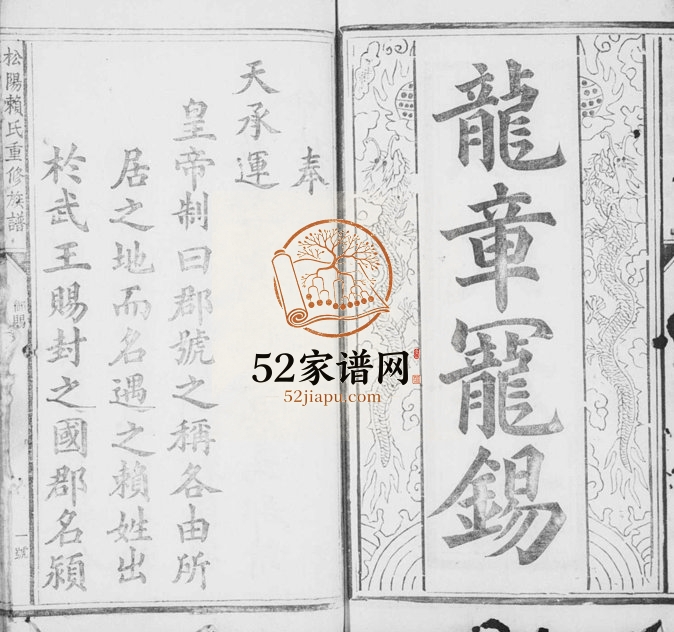 龍章寵錫
奉
天承運
皇帝制曰郡號之稱各由所
居之地而名遇之賴姓出
於武王賜封之國郡名潁
松陽賴氏重修族譜
一號
52家谱网
52jiapu.com